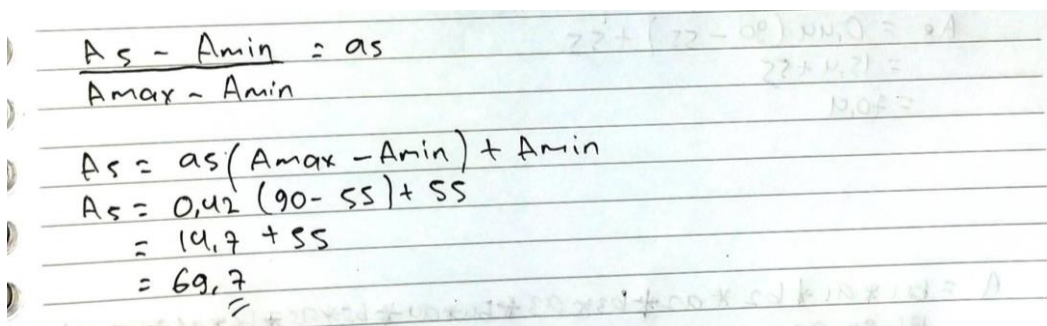 As - Amin = as
Amax - Amin
As = as (Amax - Amin) + Amin
As = 0,42 (90 - 55) + 55
= 14,7 + 55
= 69,7